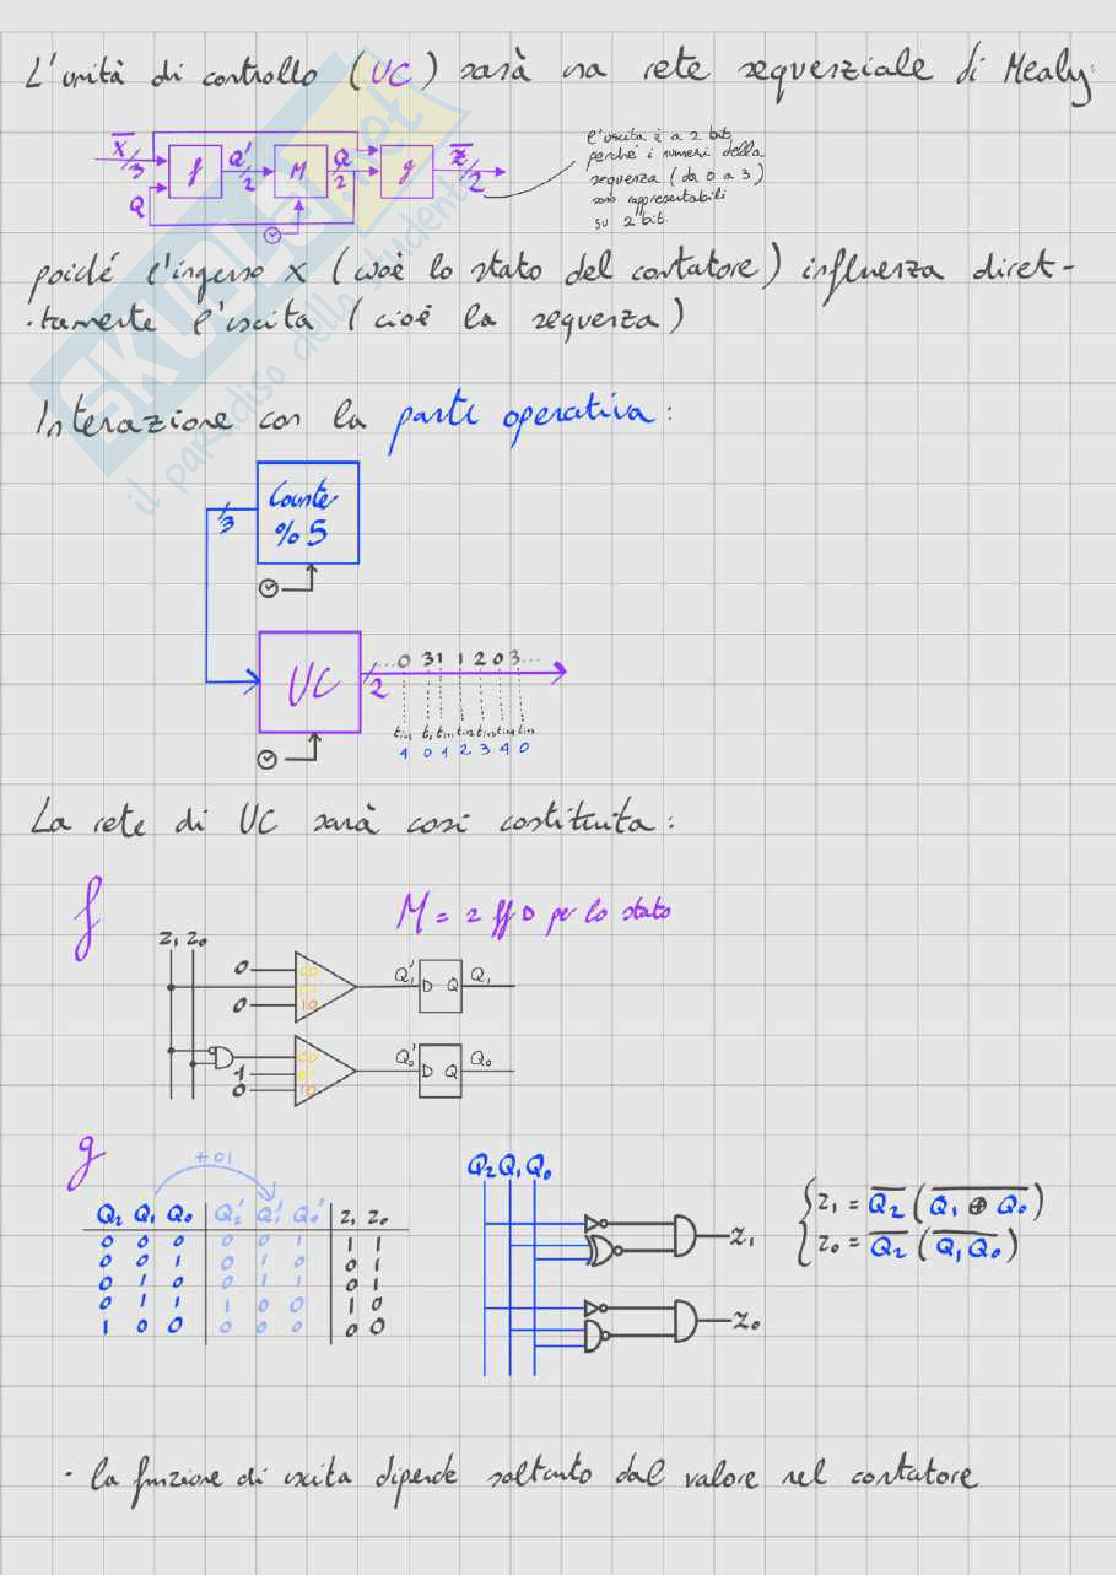 L'unità di controllo (UC) sarà una rete sequenziale di Mealy:
X/3 f Q'/2 M Q/2 g Z/2
Q
l'uscita è a 2 bit,
perché i numeri della
sequenza (da 0 a 3)
sono rappresentabili
su 2 bit.
poiché l'ingresso x (cioè lo stato del contatore) influenza diret-
-tamente l'uscita (cioè la sequenza)
Interazione con la parte operativa:
Counter
% 5
3
UC
2
...0 3 1 1 2 0 3...
4 0 1 2 3 4 0
La rete di UC sarà così costituita:
f
M = 2 ff D per lo stato
Z₁ Z₀
0
0
Q₁' D Q Q₁
1
0
Q₀' D Q Q₀
g
+01
Q₂ Q₁ Q₀ Q₂' Q₁' Q₀' Z₁ Z₀
0 0 0 0 0 1 1 1
0 0 1 0 1 0 0 1
0 1 0 0 1 1 0 1
0 1 1 1 0 0 1 0
1 0 0 0 0 0 0 0
Q₂ Q₁ Q₀
Z₁
Z₀
{ Z₁ = Q̅₂ (\overline{Q₁ ⊕ Q₀})
{ Z₀ = Q̅₂ (\overline{Q₁ Q₀})
· la funzione di uscita dipende soltanto dal valore nel contatore
SKUOLA.net
il paradiso dello studente